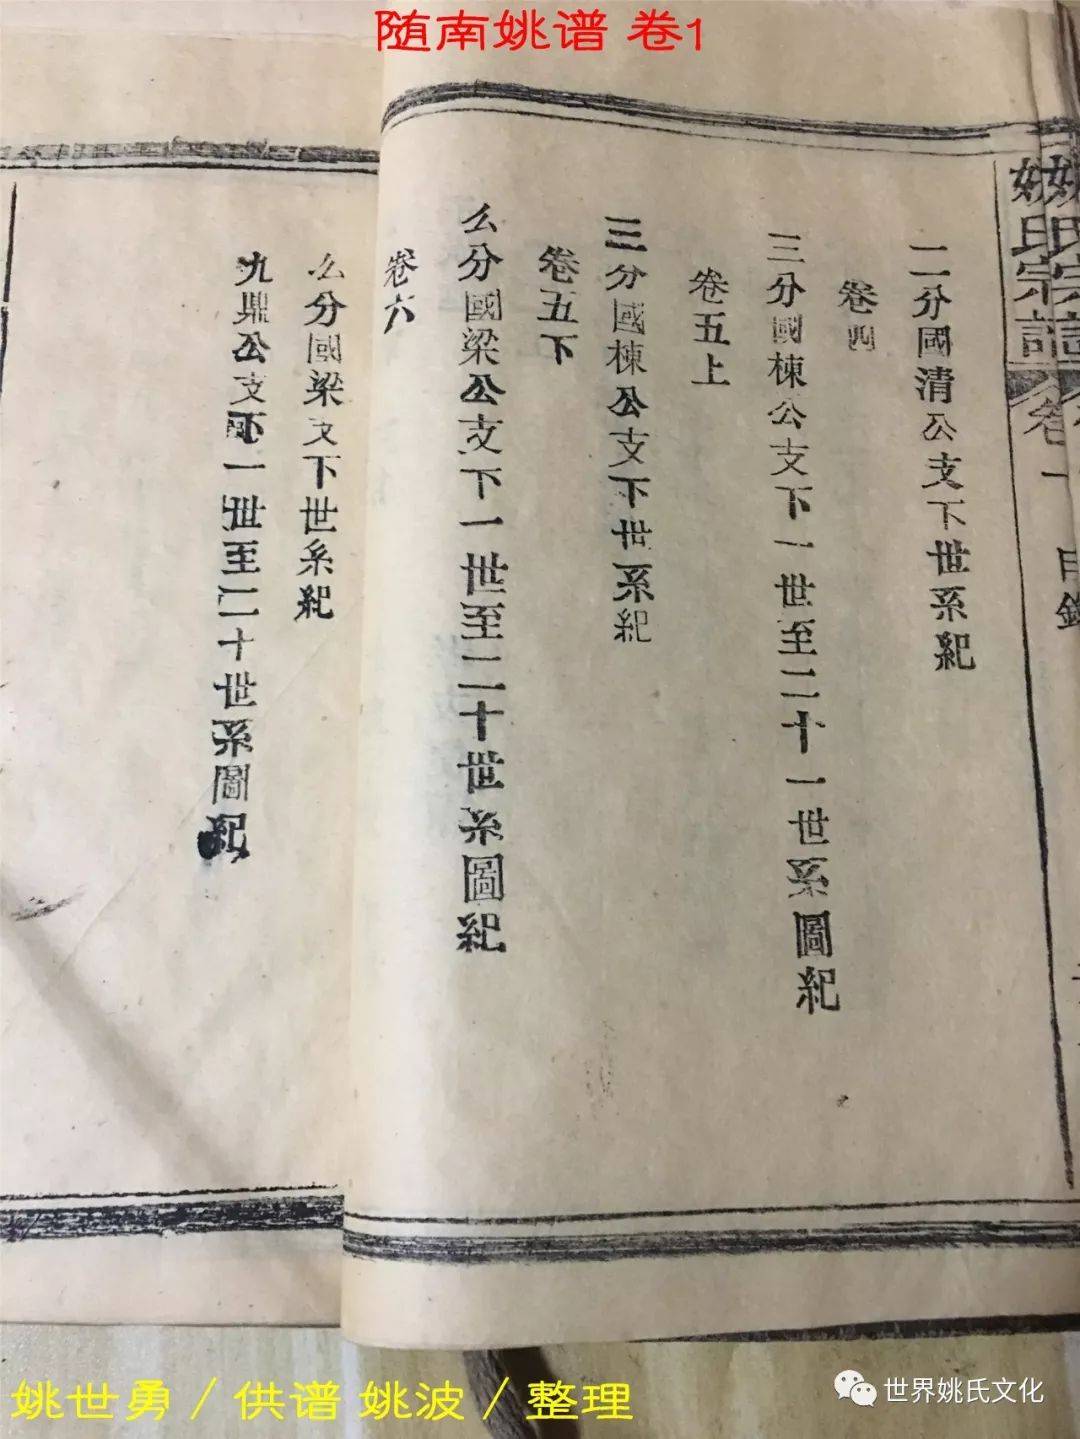 随南姚谱 卷1
姚氏宗譜 卷一 目錄
二分國清公支下世系紀
卷四
三分國棟公支下一世至二十一世系圖紀
卷五上
三分國棟公支下世系紀
卷五下
么分國梁公支下一世至二十世系圖紀
卷六
么分國梁支下世系紀
九鼎公支下一世至二十世系圖紀
姚世勇／供谱 姚波／整理
世界姚氏文化